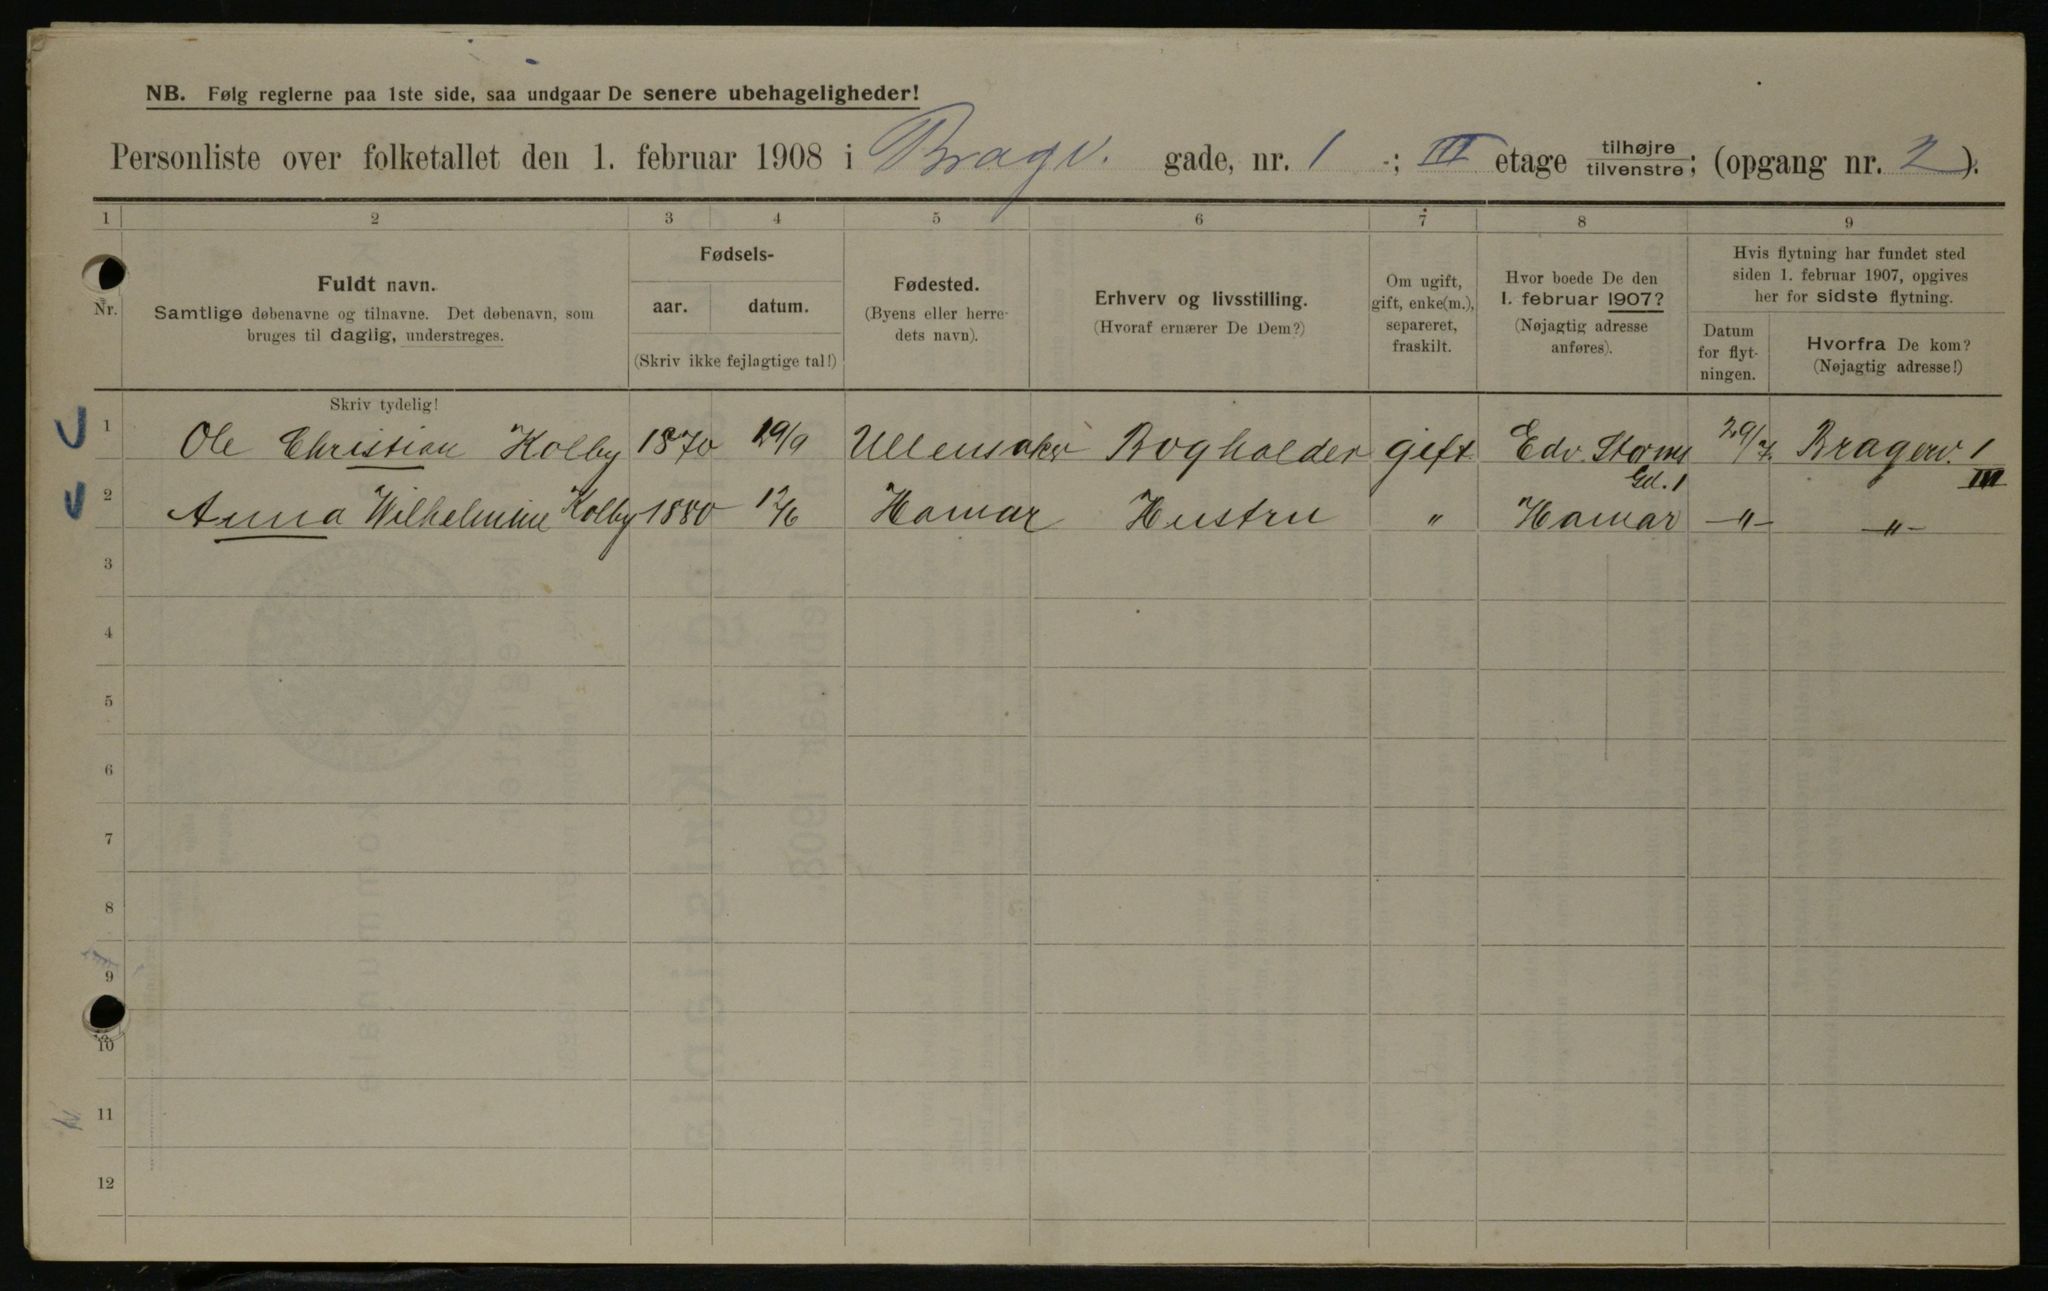 NB. Følg reglerne paa 1ste side, saa undgaar De senere ubehageligheder!
Personliste over folketallet den 1. februar 1908 i Bragv. gade, nr. 1 ; III etage tilhøjre tilvenstre; (opgang nr. 2).
1 2 3 4 5 6 7 8 9
Nr.
Fuldt navn.
Samtlige døbenavne og tilnavne. Det døbenavn, som
bruges til daglig, understreges.
Fødsels-
aar. datum.
(Skriv ikke fejlagtige tal!)
Fødested.
(Byens eller herre-
dets navn).
Erhverv og livsstilling.
(Hvoraf ernærer De Dem?)
Om ugift,
gift, enke(m.),
separeret,
fraskilt.
Hvor boede De den
1. februar 1907?
(Nøjagtig adresse
anføres).
Hvis flytning har fundet sted
siden 1. februar 1907, opgives
her for sidste flytning.
Datum
for flyt-
ningen.
Hvorfra De kom?
(Nøjagtig adresse!)
Skriv tydelig!
1 Ole Christian Kolby 1870 Ullensaker Bogholder gift Edv. Storms Gd. 1 29/7 Bragerv. 1 III
2 Anna Wilhelmine Kolby 1880 12/6 Hamar Hustru " Hamar -"- -"-
3
4
5
6
7
8
9
10
11
12